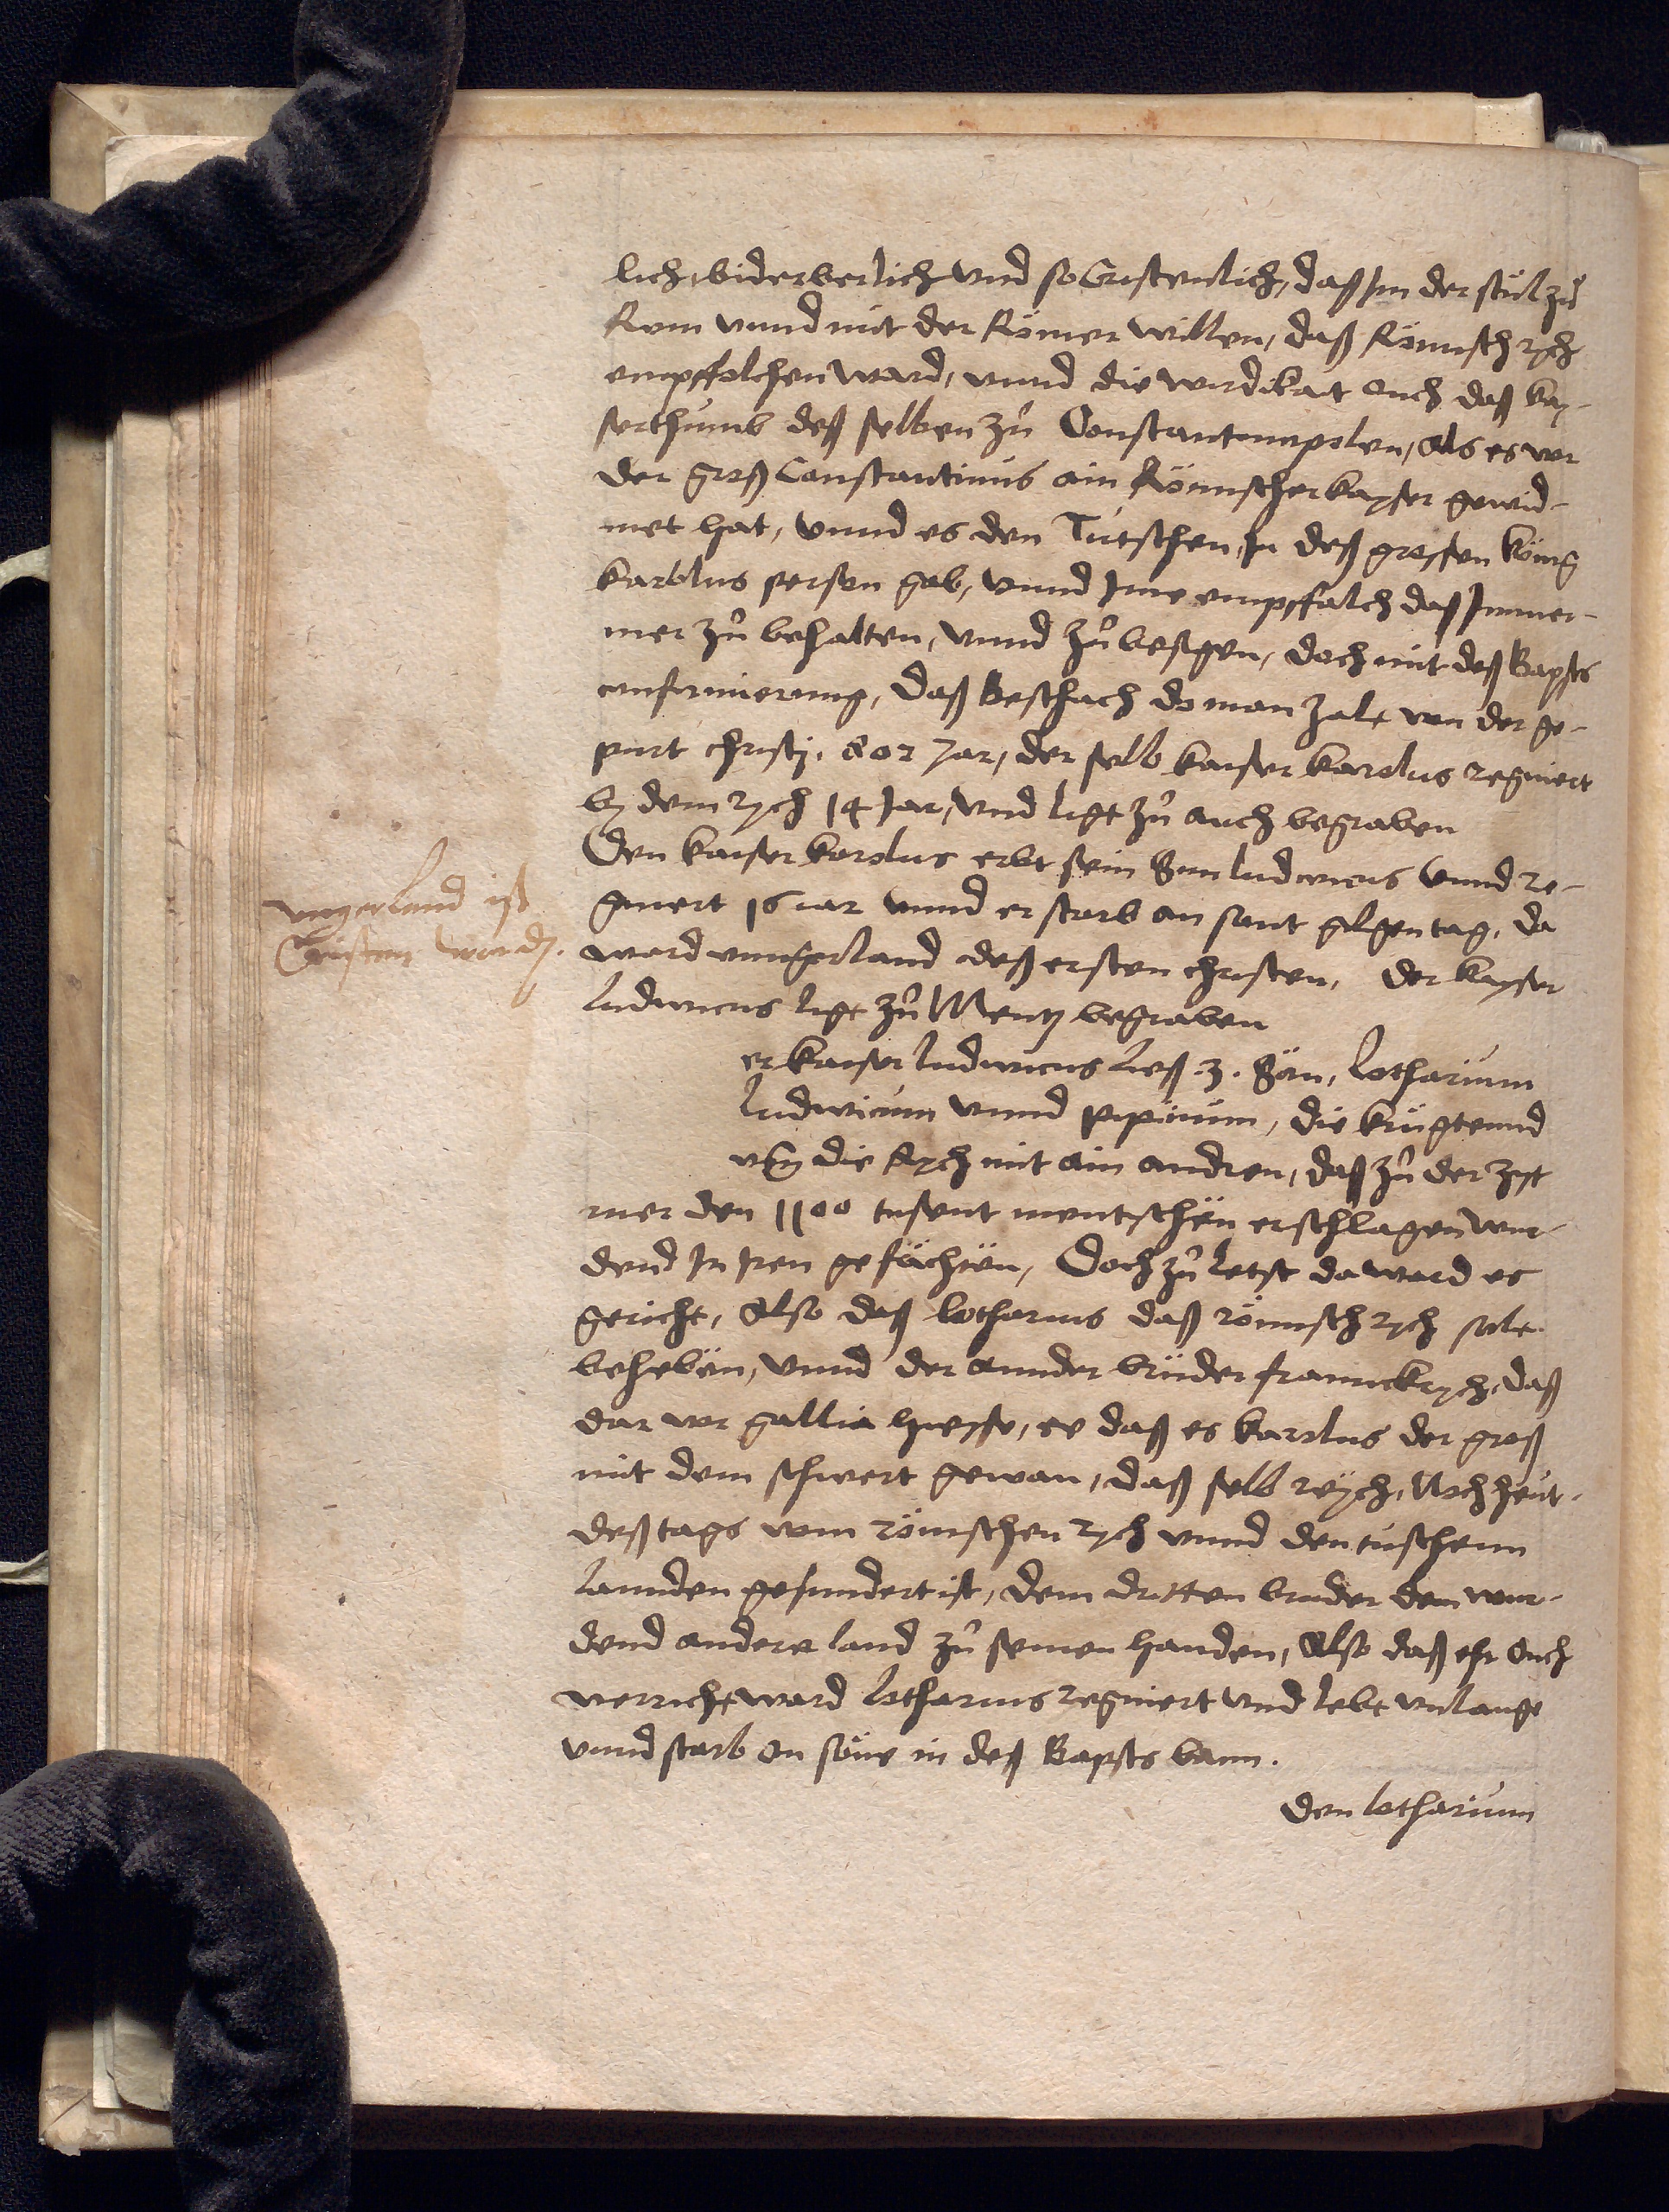 lich, biderberlich vnd so Cristenlich, daß Jm der stůl zů
Rom vnnd mit der Römer willen, daß Römisch rych
empffolchen ward, vnnd die wirdikait ouch daß kay-
serthumb deß selben zů Constantinopolen, als es vor
der groß Constantinus ain Römischer kayser gewid-
met hat, vnnd es den Tütschen, Jn deß grossen König
karolus person gab, vnnd Jme empffalch daß Jmmer-
mer zů behalten, vnnd zů besigen, doch mit deß Bapsts
confirmierung, daß Beschach do man zalt von der ge-
purt christj. 802 Jar, der selb kaiser karolus regniert
by dem rych 14 Jar, vnd ligt zů auch begraben
Den kaiser karolus erbt sein Sun ludwicus vnnd re-
gniert 16 iar vnnd er starb an sant gilgen tag, da
ward vnngerland deß ersten christen, der kayser
ludwicus ligt zů Mentz begraben
vngerland ist
Cristen word.
er kaiser ludwicus ließ .3. Sön, lotharium
ludwicum vnnd pipinum, die kriigtennd
vm die Rych mit ain andren, daß zů der zyt
mer den 1100 tusent mentschen erschlagen wur-
dend Jn Jren gefächten, Doch zů letst da ward es
gericht, Also daß lotharius daß römisch rych solt
beheben, vnnd der annder brüder franckrych, daß
dar vor gallia hiesse, ee daß es karolus der groß
mit dem schwert gewan, daß selb reych, Noch heut-
deß tags vom römischen rych vnnd den tuschenn
lannden gesundert ist, dem dritten bruder dem wur-
dend andere land zů seinen handen, Also daß ehr ouch
verricht ward lotharius regniert vnd lebt vnlange
vnnd starb on söne in deß Bapsts bann.
den lotharium